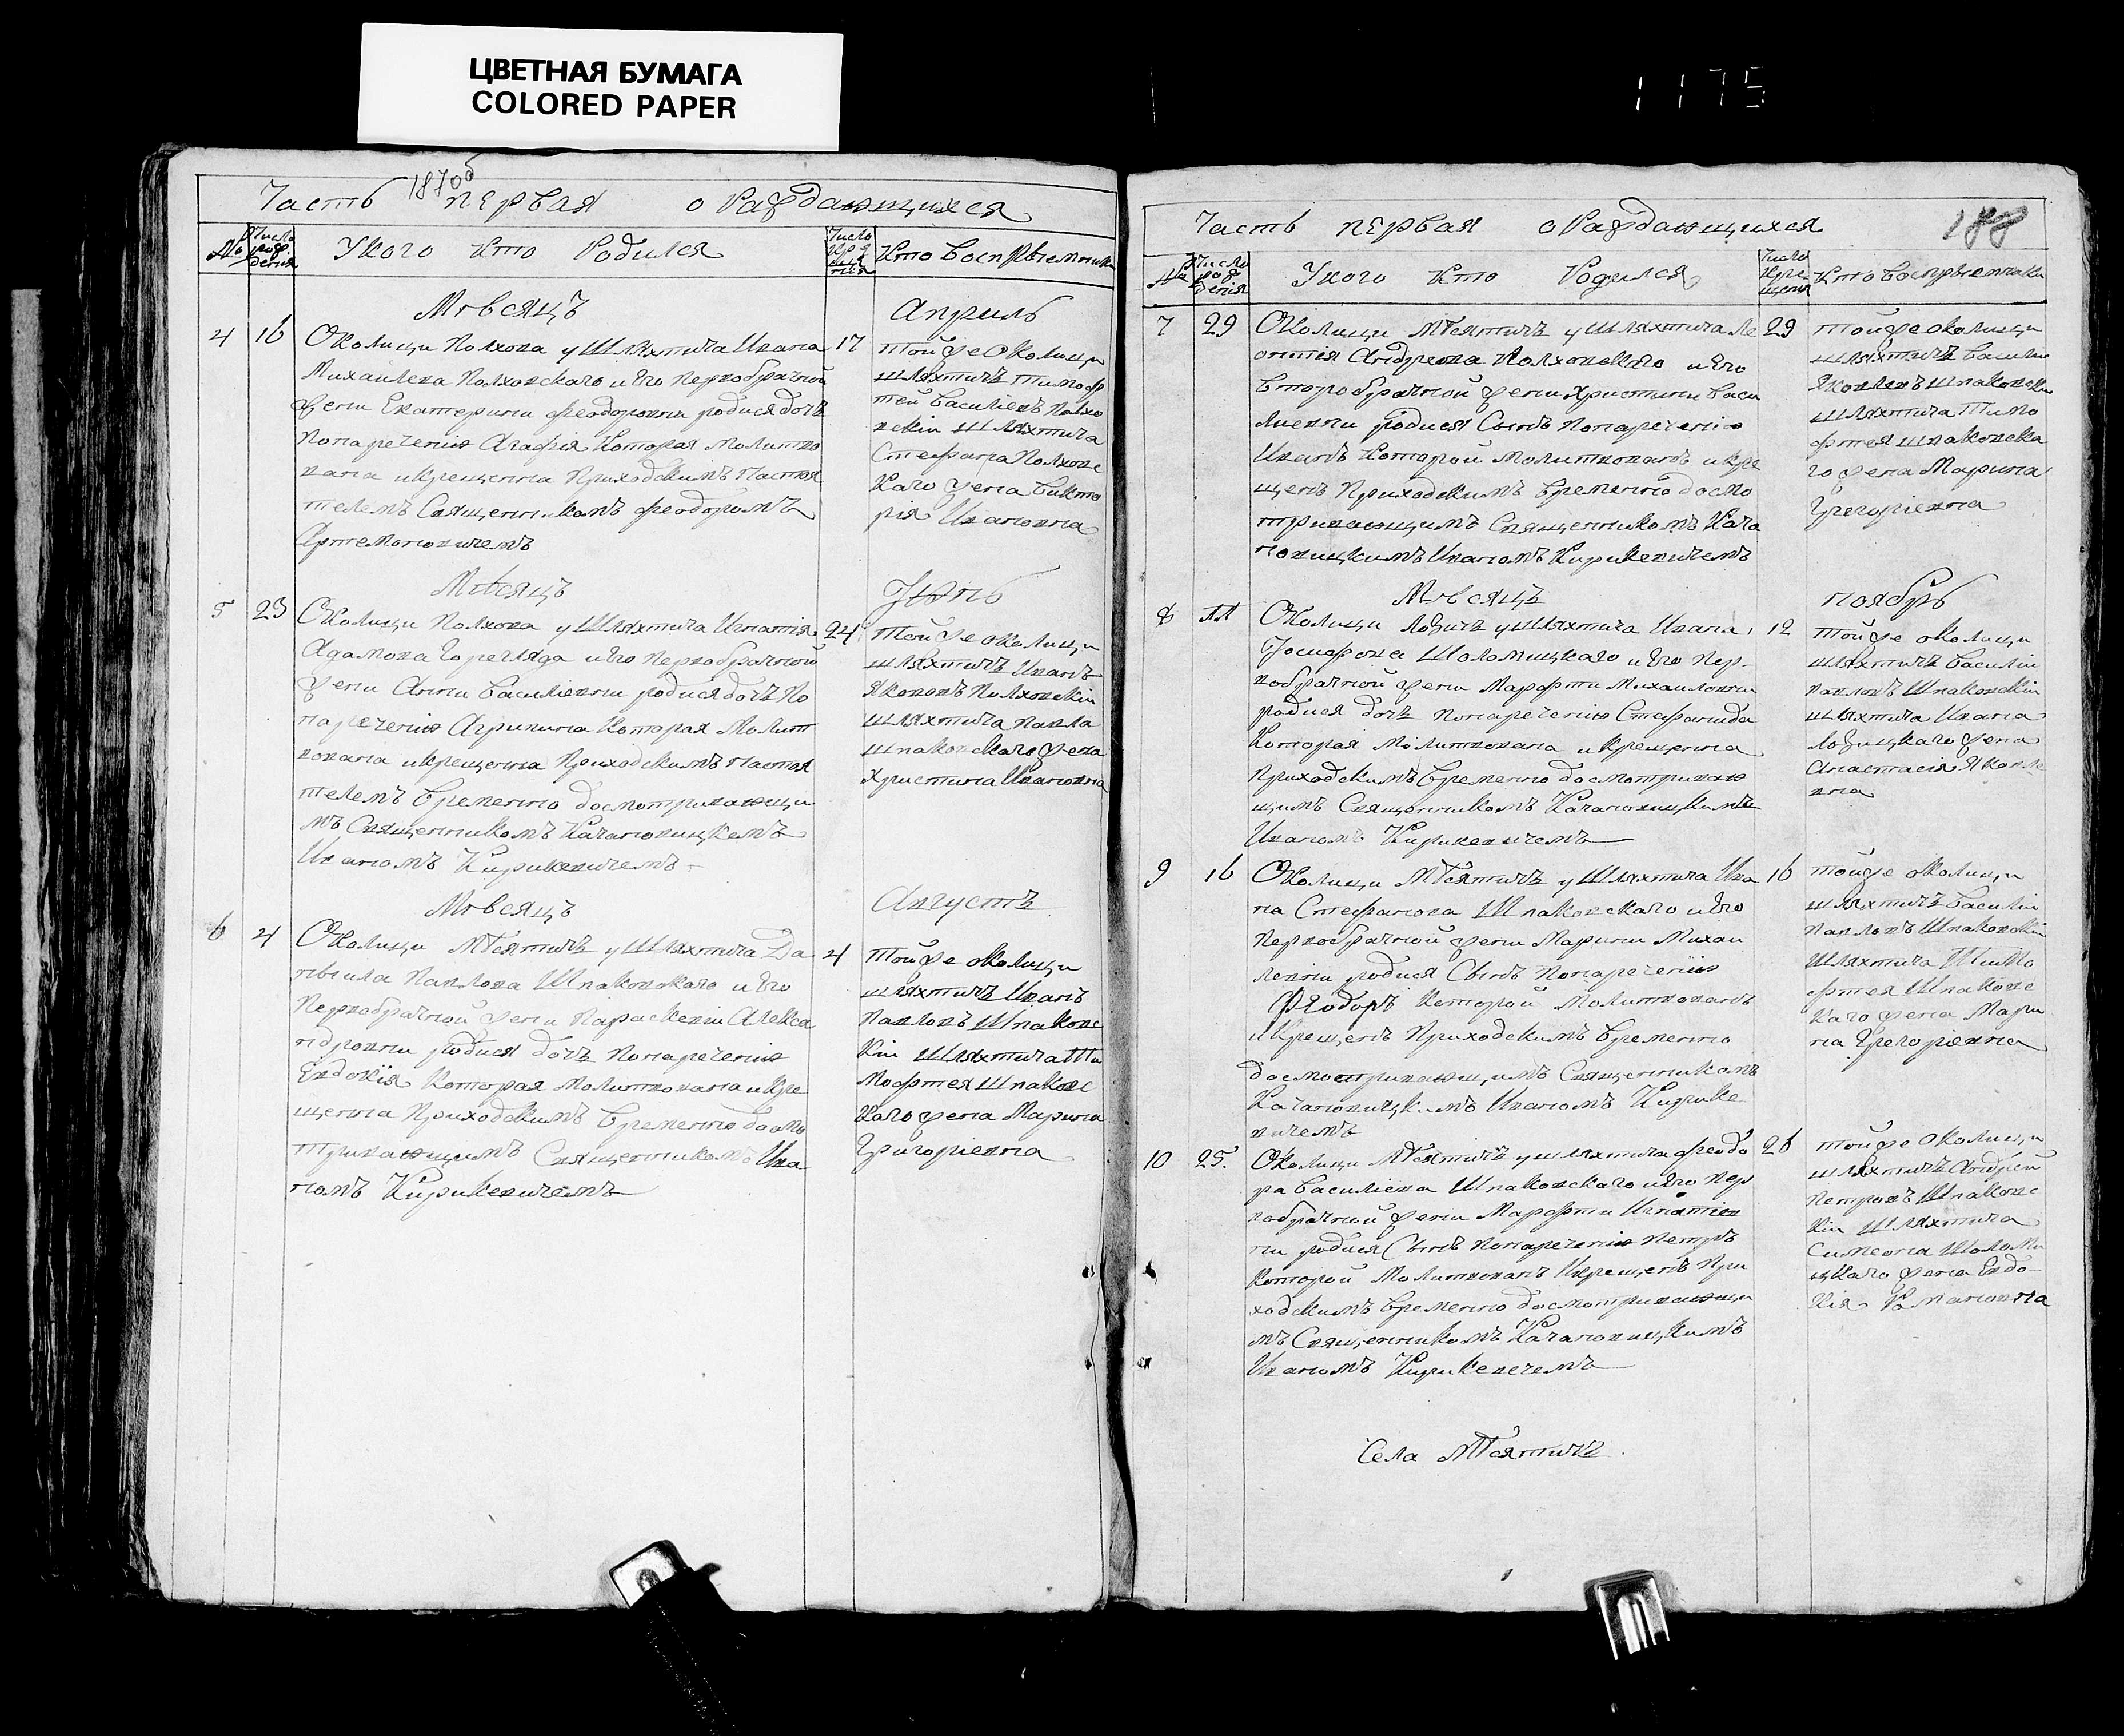 ЦВЕТНАЯ БУМАГА
COLORED PAPER
1175
187об
Часть первая о Раждающихся
№ Число рождения У кого кто Родился Число крещения Кто Воспрѣемники
Мѣсяцъ Априль
4 16 Околици Полхова у Шляхтича Ивана
Михаилева Полховскаго и Его первобрачной
жени Екатерини Феодоровни родися дочь
понаречению Агафія Которая Молитво
вана и крещенна Приходскимъ Настоя
телемъ Священникомъ Феодоромъ
Артемоновичемъ
17 тойже Околици
шляхтичъ Тимоф
тей Василіевъ Полхо
вскіи Шляхтича
Стефана Полховс
каго жена Викто
рія Ивановна
Мѣсяцъ Іюнь
5 23 Околици Полхова у Шляхтича Игнатія
Адамова Горегляда и Его первобрачной
жени Анни Василіевни родися дочь по
наречению Агрипина Которая Молит
вована и крещенна Приходскимъ Настоя
телемъ Временно досмотривающи
мъ Священникомъ Качановицкемъ
Иваномъ Кирикевичемъ
24 Тойже околици
шляхтичъ Иванъ
Яковвъ Полховскіи
шляхтича Павла
Шпаковскаго жена
Христина Ивановна
Мѣсяцъ Августъ
6 4 Околици Мѣсятичъ у Шляхтича Да
ніила Павлова Шпаковскаго и Его
Первобрачной жени Параскевіи Алекса
ндровни родися дочь понаречению
Евдокія Которая Молитвована и кре
щенна Приходскимъ Временно досмо
тривающимъ Священникомъ Ива
номъ Кирикевичемъ
4 Тойже околици
шляхтичъ Иванъ
Павловъ Шпаковс
кіи Шляхтича Ти
мофтея Шпаковс
каго жена Марина
Григоріевна
Часть первая о Раждающихся 188
№ Число рождения У кого Кто Родился Число Крещения Кто Воспрѣемники
7 29 Околици Мѣсятичъ у шляхтича Ле
онтія Андреева Полховскаго и Его
Второбрачной жени Христини Васи
лиевни родися Сынъ понаречению
Иванъ Которой Молитвованъ и кре
щенъ Приходскимъ Временно досмо
тривающимъ Священникомъ Кача
новицкимъ Иваномъ Кирикевичемъ
29 тойже околици
шляхтичъ Василіи
Яковлевъ Шпаковскіи
шляхтича Тимо
фтея Шпаковска
го жена Марина
Григоріевна
Мѣсяцъ ноябрь
8 11 Околици Ловичъ у Шляхтича Ивана
Іосифова Шоломицкаго и Его Пер-
вобрачной жени Марфти Михаиловни
родися дочь понаречению Стефанида
Которая Молитвована и Крещенна
Приходскимъ Временно досмотриваю
щимъ Священникомъ Качановицкимъ
Иваномъ Кирикевичемъ
12 Тойже околици
шляхтичъ Василіи
Павловъ Шпаковскіи
шляхтича Ивана
Ловицкаго жена
Анастасія Яковле
вна
9 16 Околици Мѣсятичъ у Шляхтича Ива
на Стефанова Шпаковскаго и Его
Первобрачной жени Марини Михаи
левни родися Сынъ понаречению
Феодоръ Которой Молитвованъ
и Крещенъ Приходскимъ Временно
досмотривающимъ Священникамъ
Качановицкимъ Иваномъ Кирике
вичемъ
16 тойже околици
шляхтичъ Василіи
Павловъ Шпаковскіи
Шляхтича Тимо
фтея Шпаковс
каго жена Мари
на Григоріевна
10 25. Околици Мѣсятичъ у шляхтича Феодо
ра Василіева Шпаковскаго и Его Пер
вобрачной жени Марфти Игнатіев
ни родися Сынъ понаречению Петръ
Которой Молитвованъ И крещенъ При
ходскимъ Временно досмотривающи
мъ Священникомъ Качановицкимъ
Иваномъ Кирикевечемъ
26 тойже Околици
шляхтичъ Андрей
Петровъ Шпаковс
кіи Шляхтича
Симеона Шоломи
цкаго жена Евдо-
кія Романовна
Села Мѣсятичъ